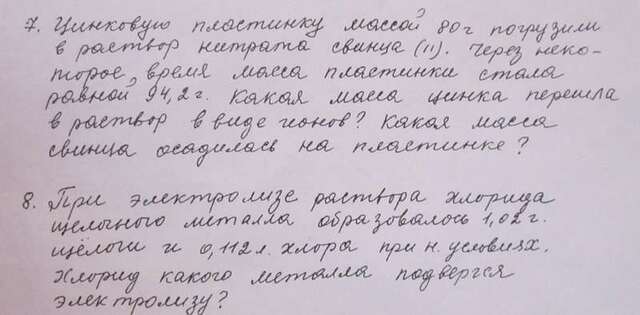 7. Цинковую пластинку массой 80 г погрузили
в раствор нитрата свинца (II). Через неко-
торое время масса пластинки стала
равной 94,2 г. Какая масса цинка перешла
в раствор в виде ионов? Какая масса
свинца осадилась на пластинке?
8. При электролизе раствора хлорида
щелочного металла образовалось 1,02 г.
щёлочи и 0,112 л. хлора при н. условиях.
Хлорид какого металла подвергся
электролизу?